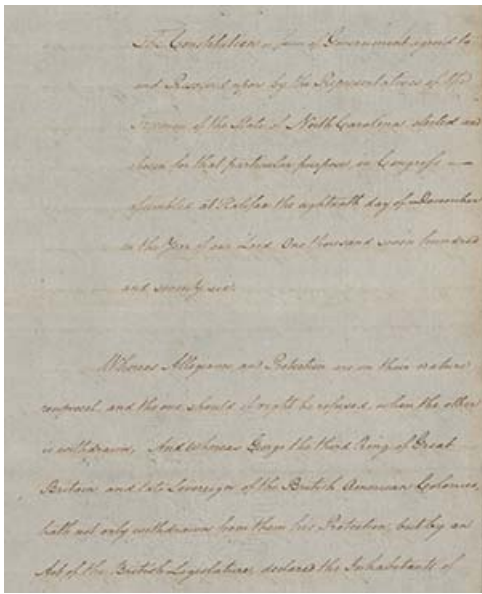 The Constitution or form of Government agreed to
and Resolved upon by the Representatives of the
Freemen of the State of North Carolina elected and
chosen for that particular purpose, in Congress as-
sembled at Halifax the eighteenth day of December
in the Year of our Lord One thousand seven hundred
and seventy six.
Whereas Allegiance and Protection are in their nature
reciprocal, and the one should of right be refused, when the other
is withdrawn. And whereas George the third King of Great
Britain and late Sovereign of the British American Colonies,
hath not only withdrawn from them his Protection, but by an
Act of the British Legislature, declared the Inhabitants of